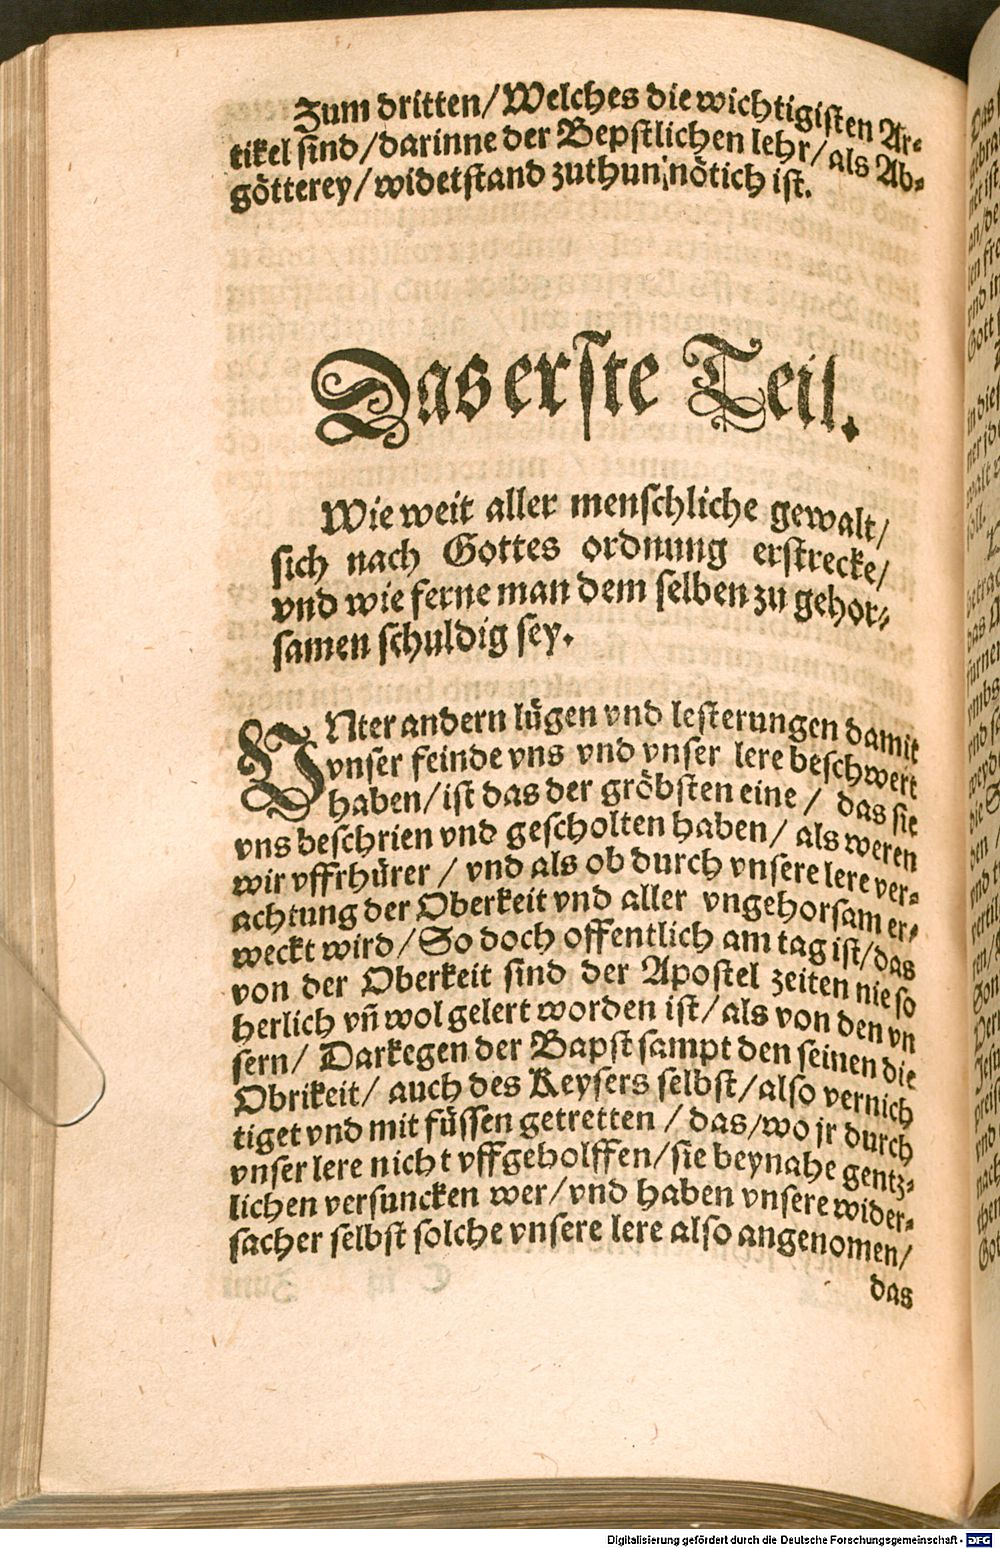 Zum dritten/Welches die wichtigisten Ar-
tikel sind/darinne der Bepstlichen lehr/als Ab-
götterey/widetstand zuthun nötich ist.
Das erste Teil.
Wie weit aller menschliche gewalt/
sich nach Gottes ordnung erstrecke/
vnd wie ferne man dem selben zu gehor-
samen schuldig sey.
VNter andern lügen vnd lesterungen damit
vnser feinde vns vnd vnser lere beschwert
haben/ist das der gröbsten eine / das sie
vns beschrien vnd gescholten haben/ als weren
wir vffrhürer / vnd als ob durch vnsere lere ver-
achtung der Oberkeit vnd aller vngehorsam er-
weckt wird/So doch offentlich am tag ist/das
von der Oberkeit sind der Apostel zeiten nie so
herlich vñ wol gelert worden ist/als von den vn
sern/ Darkegen der Bapst sampt den seinen die
Obrikeit/ auch des Keysers selbst/also vernich
tiget vnd mit füssen getretten / das/wo jr durch
vnser lere nicht vffgeholffen/sie beynahe gentz-
lichen versuncken wer/vnd haben vnsere wider-
sacher selbst solche vnsere lere also angenomen/
das
Digitalisierung gefördert durch die Deutsche Forschungsgemeinschaft - DFG